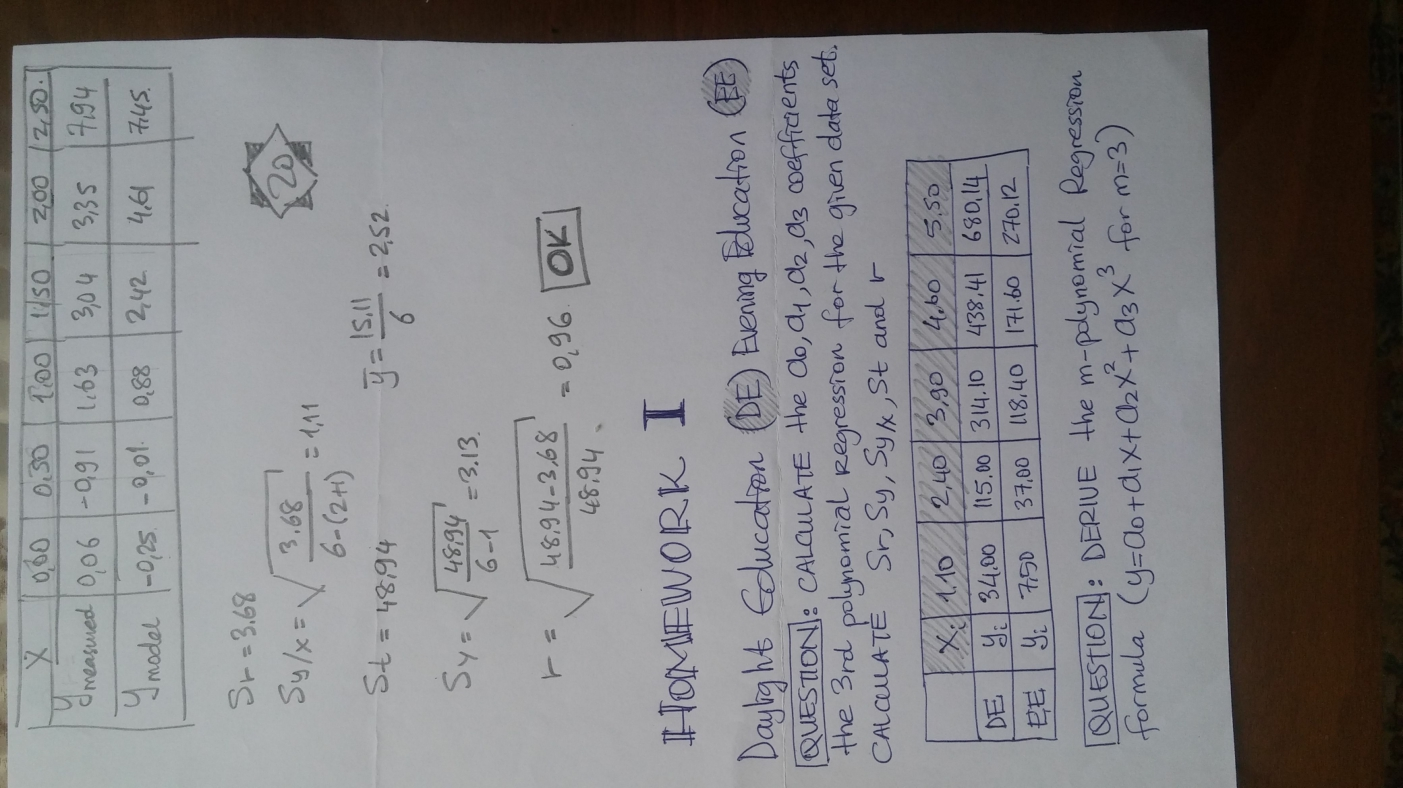 X 0,00 0,50 1,00 1,50 2,00 2,50
y measured 0,06 -0,91 1.63 3,04 3,35 7,94
y model -0,25 -0,01 0,88 2,42 4,61 7,45
20
Sr = 3.68
Sy/x = √ 3.68 / 6-(2+1) = 1,11
St = 48,94 y̅ = 15,11 / 6 = 2,52
Sy = √ 48,94 / 6-1 = 3.13
r = √ 48.94-3,68 / 48,94 = 0,96 OK
HOMEWORK I
Daylight Education (DE) Evening Education (EE)
QUESTION: CALCULATE the a0, a1, a2, a3 coefficients
the 3rd polynomial regression for the given data set.
CALCULATE Sr, Sy, Sy/x, St and r
Xi 1,10 2,40 3,90 4,60 5,50
DE yi 34.00 115.00 314.10 438.41 680,14
EE yi 7.50 37,00 118,40 171.60 270,12
QUESTION: DERIVE the m-polynomial Regression
formula (y=a0+a1x+a2x²+a3x³ for m=3)